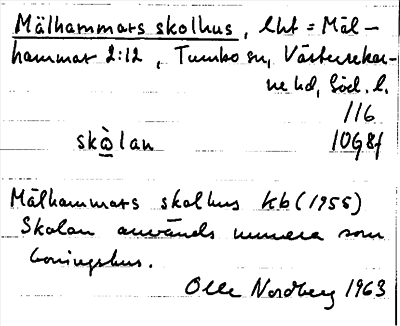 Mälhammars skolhus, lht = Mäl-
hammar 2:12, Tumbo sn, Västerrekar-
ne hd, Söd. l.
116
skọ̀lan 10G8f
Mälhammars skolhus kb (1955)
Skolan används numera som
boningshus.
Olle Nordberg 1963